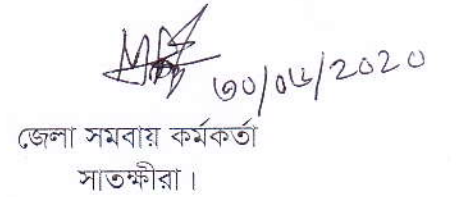 ৩০/০৬/২০২০
জেলা সমবায় কর্মকর্তা
সাতক্ষীরা।